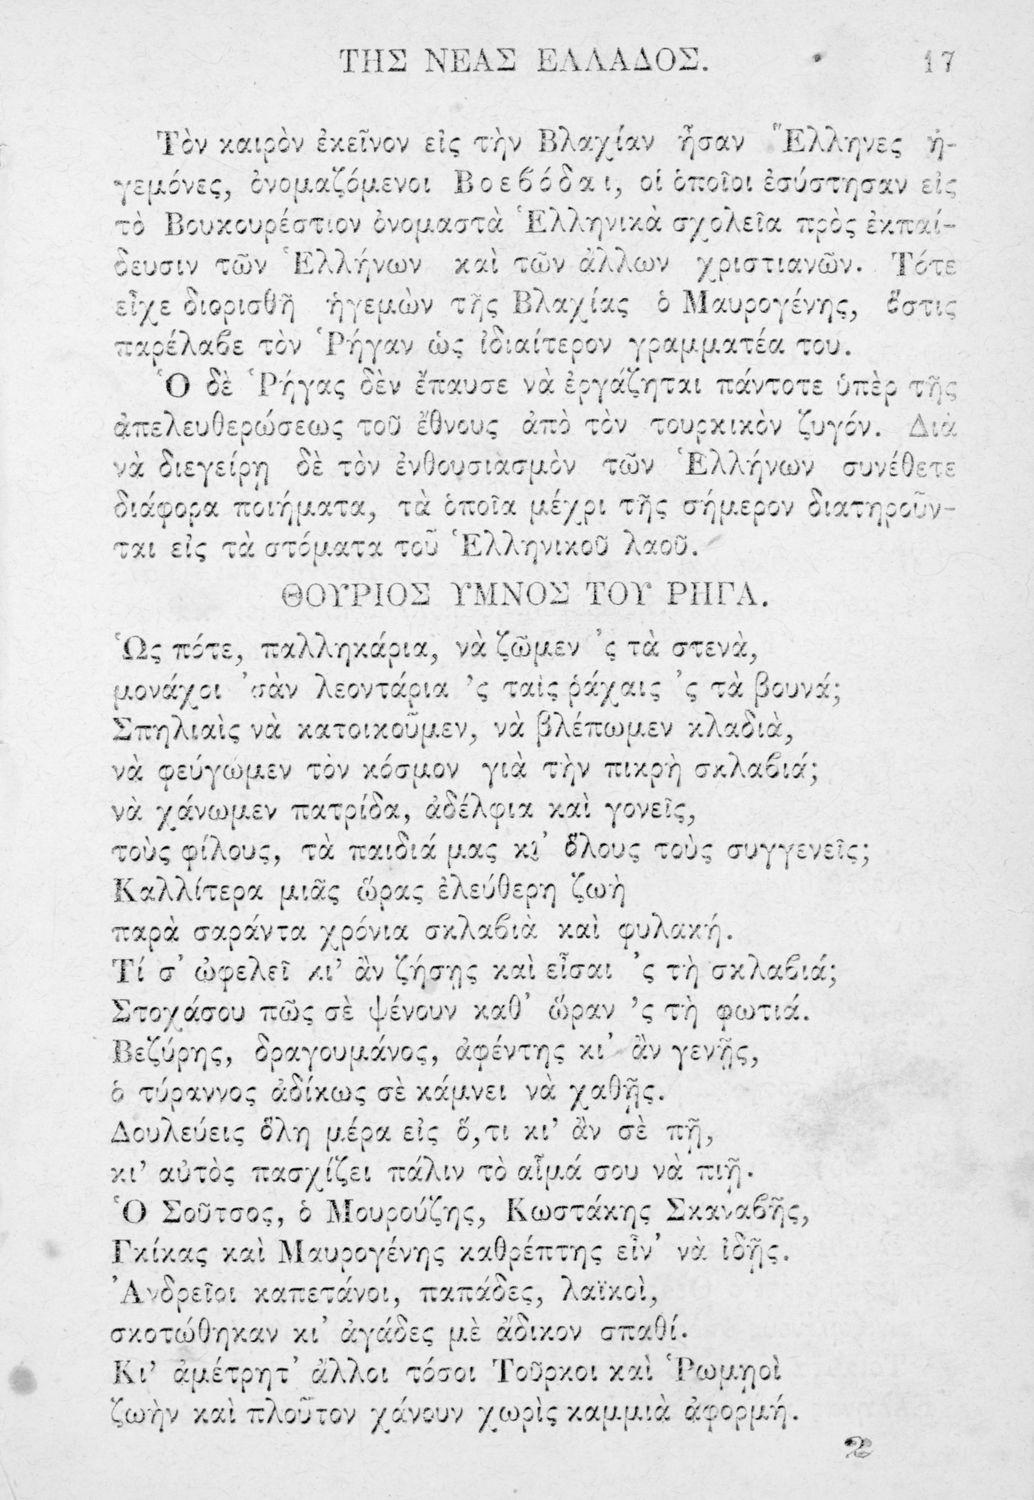 ΤΗΣ ΝΕΑΣ ΕΛΛΑΔΟΣ. 17
Τὸν καιρὸν ἐκεῖνον εἰς τὴν Βλαχίαν ἦσαν Ἕλληνες ἡ-
γεμόνες, ὀνομαζόμενοι Βοεβόδαι, οἱ ὁποῖοι ἐσύστησαν εἰς
τὸ Βουκουρέστιον ὀνομαστὰ Ἑλληνικὰ σχολεῖα πρὸς ἐκπαί-
δευσιν τῶν Ἑλλήνων καὶ τῶν ἄλλων χριστιανῶν. Τότε
εἶχε διορισθῆ ἡγεμὼν τῆς Βλαχίας ὁ Μαυρογένης, ὅστις
παρέλαβε τὸν Ῥήγαν ὡς ἰδιαίτερον γραμματέα του.
Ὁ δὲ Ῥήγας δὲν ἔπαυσε νὰ ἐργάζηται πάντοτε ὑπὲρ τῆς
ἀπελευθερώσεως τοῦ ἔθνους ἀπὸ τὸν τουρκικὸν ζυγόν. Διὰ
νὰ διεγείρῃ δὲ τὸν ἐνθουσιασμὸν τῶν Ἑλλήνων συνέθετε
διάφορα ποιήματα, τὰ ὁποῖα μέχρι τῆς σήμερον διατηροῦν-
ται εἰς τὰ στόματα τοῦ Ἑλληνικοῦ λαοῦ.
ΘΟΥΡΙΟΣ ΥΜΝΟΣ ΤΟΥ ΡΗΓΑ.
Ὡς πότε, παλληκάρια, νὰ ζῶμεν 'ς τὰ στενὰ,
μονάχοι 'σὰν λεοντάρια 'ς ταὶς ῥάχαις 'ς τὰ βουνά;
Σπηλιαὶς νὰ κατοικοῦμεν, νὰ βλέπωμεν κλαδιὰ,
νὰ φεύγωμεν τὸν κόσμον γιὰ τὴν πικρὴ σκλαβιά;
νὰ χάνωμεν πατρίδα, ἀδέλφια καὶ γονεῖς,
τοὺς φίλους, τὰ παιδιά μας κι' ὅλους τοὺς συγγενεῖς;
Καλλίτερα μιᾶς ὥρας ἐλεύθερη ζωὴ
παρὰ σαράντα χρόνια σκλαβιὰ καὶ φυλακή.
Τί σ' ὠφελεῖ κι' ἂν ζήσῃς καὶ εἶσαι 'ς τὴ σκλαβιά;
Στοχάσου πῶς σὲ ψένουν καθ' ὥραν 'ς τὴ φωτιά.
Βεζύρης, δραγουμάνος, ἀφέντης κι' ἂν γενῇς,
ὁ τύραννος ἀδίκως σὲ κάμνει νὰ χαθῇς.
Δουλεύεις ὅλη μέρα εἰς ὅ,τι κι' ἂν σὲ πῇ,
κι' αὐτὸς πασχίζει πάλιν τὸ αἷμά σου νὰ πιῇ.
Ὁ Σοῦτσος, ὁ Μουρούζης, Κωστάκης Σκαναβῆς,
Γκίκας καὶ Μαυρογένης καθρέπτης εἶν' νὰ ἰδῇς.
Ἀνδρεῖοι καπετάνοι, παπάδες, λαϊκοὶ,
σκοτώθηκαν κι' ἀγάδες μὲ ἄδικον σπαθί.
Κι' ἀμέτρητ' ἄλλοι τόσοι Τοῦρκοι καὶ Ῥωμῃοὶ
ζωὴν καὶ πλοῦτον χάνουν χωρὶς καμμιὰ ἀφορμή.
2